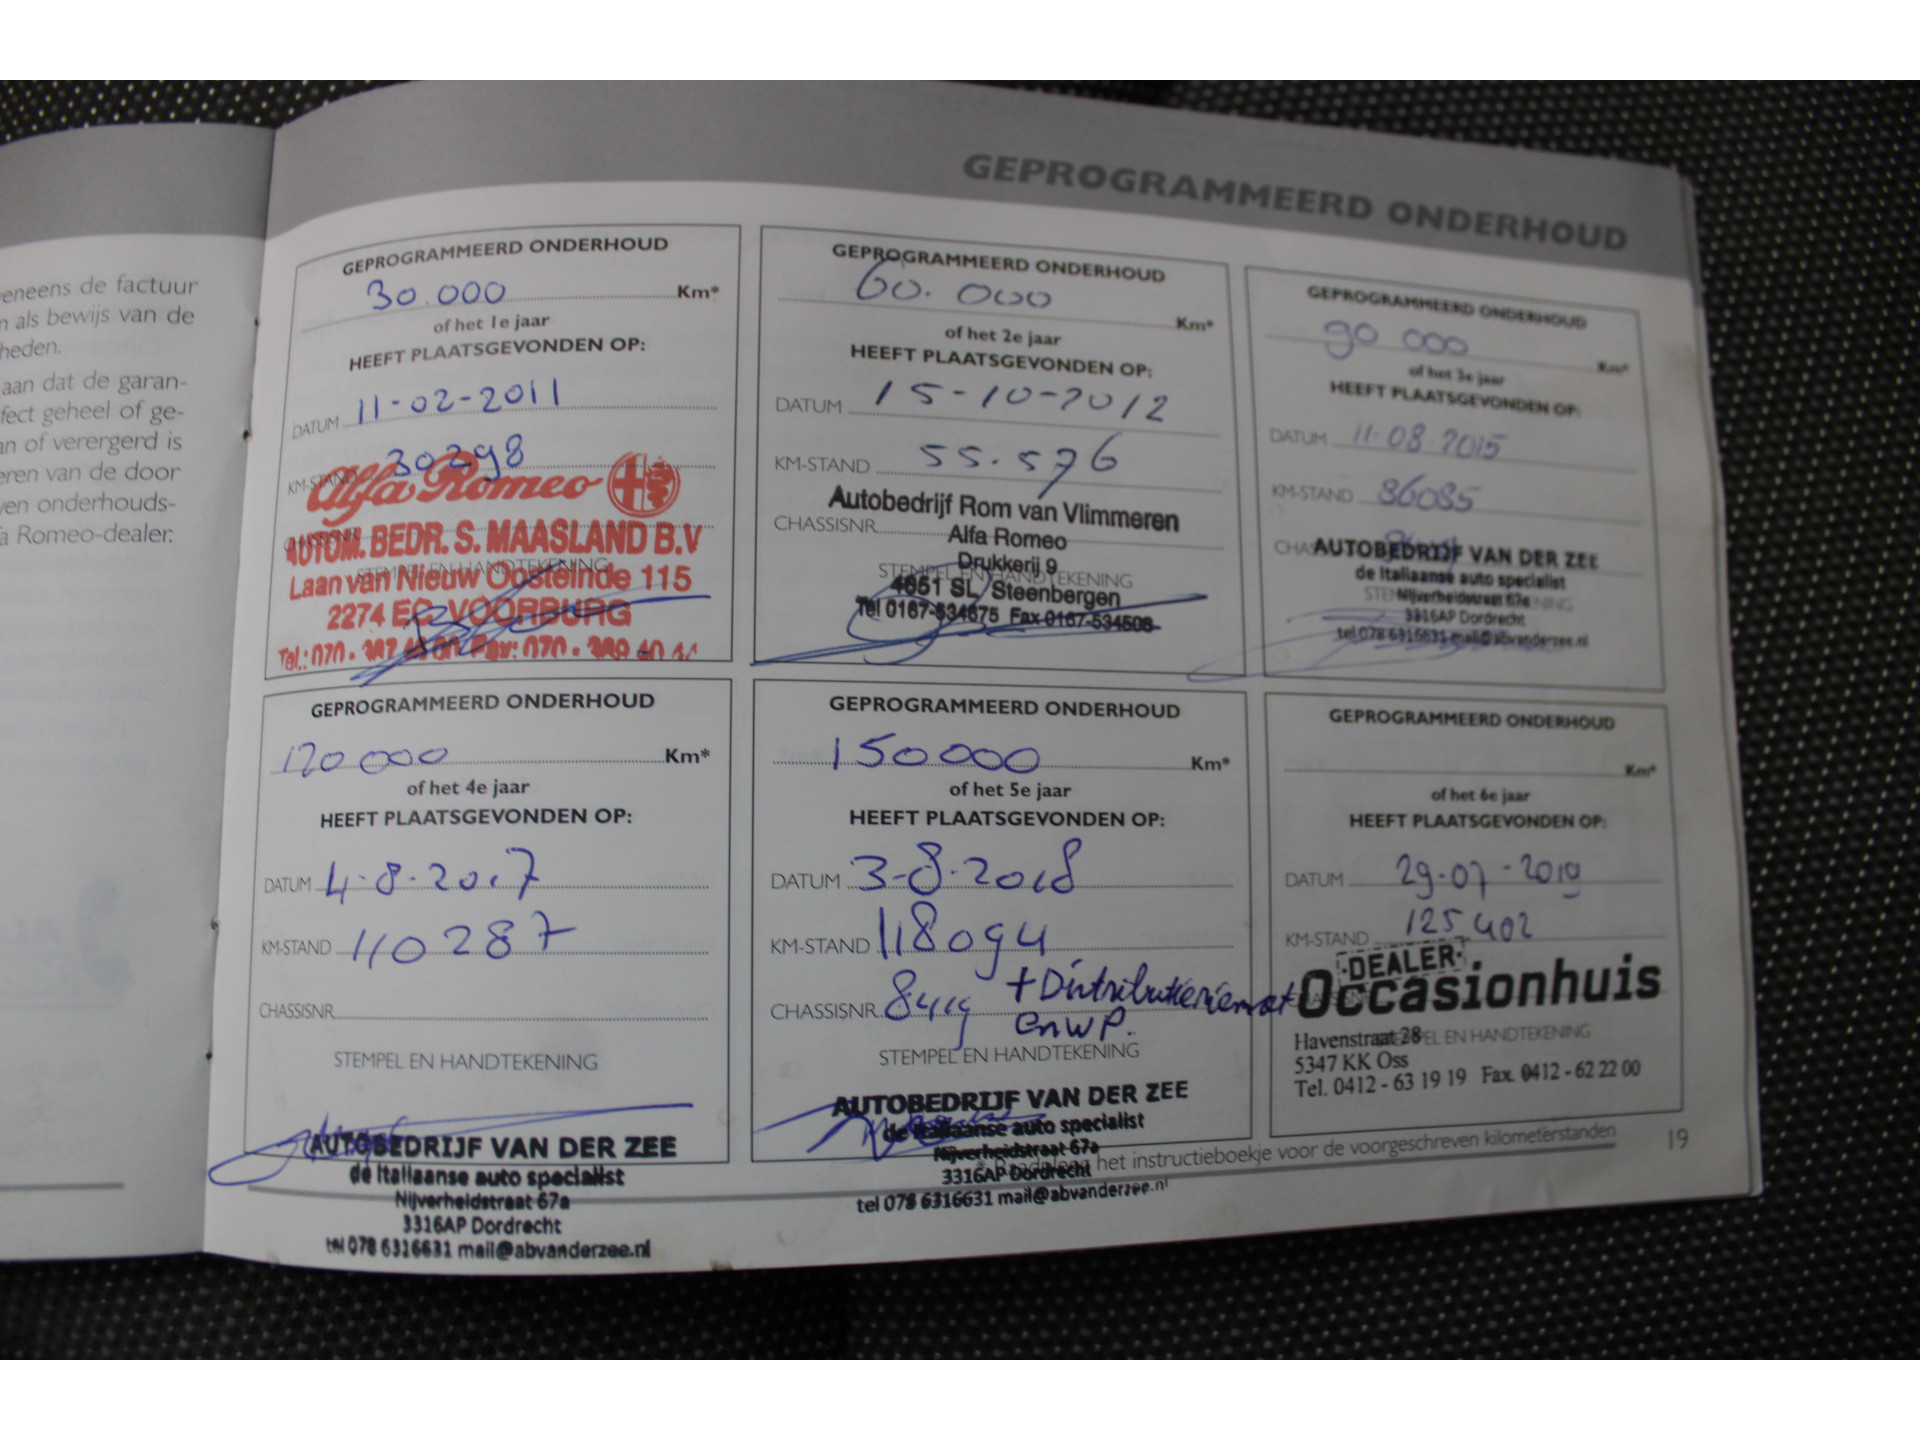 eneens de factuur
als bewijs van de
heden.
aan dat de garan-
fect geheel of ge-
an of verergerd is
eren van de door
ven onderhouds-
Romeo-dealer.
GEPROGRAMMEERD ONDERHOUD
GEPROGRAMMEERD ONDERHOUD
30.000 Km*
of het 1e jaar
HEEFT PLAATSGEVONDEN OP:
DATUM 11-02-2011
KM-STAND 30298
Alfa Romeo
CHASSISNR
AUTOM. BEDR. S. MAASLAND B.V
STEMPEL EN HANDTEKENING
Laan van Nieuw Oosteinde 115
2274 EC VOORBURG
GEPROGRAMMEERD ONDERHOUD
60.000 Km*
of het 2e jaar
HEEFT PLAATSGEVONDEN OP:
DATUM 15-10-2012
KM-STAND 55.576
Autobedrijf Rom van Vlimmeren
CHASSISNR
Alfa Romeo
Drukkerij 9
STEMPEL EN HANDTEKENING
4651 SL Steenbergen
Tel 0167-534675 Fax 0167-534508
GEPROGRAMMEERD ONDERHOUD
90 000 Km*
of het 3e jaar
HEEFT PLAATSGEVONDEN OP:
DATUM 11-08-2015
KM-STAND 86085
AUTOBEDRIJF VAN DER ZEE
de Italiaanse auto specialist
Nijverheidstraat 67a
3316AP Dordrecht
tel 078 6316631 mail@abvanderzee.nl
GEPROGRAMMEERD ONDERHOUD
120 000 Km*
of het 4e jaar
HEEFT PLAATSGEVONDEN OP:
DATUM 4-8-2017
KM-STAND 110287
CHASSISNR
STEMPEL EN HANDTEKENING
AUTOBEDRIJF VAN DER ZEE
de Italiaanse auto specialist
Nijverheidstraat 67a
3316AP Dordrecht
tel 078 6316631 mail@abvanderzee.nl
GEPROGRAMMEERD ONDERHOUD
150000 Km*
of het 5e jaar
HEEFT PLAATSGEVONDEN OP:
DATUM 3-8-2018
KM-STAND 118094
CHASSISNR 8419 + Distributieriem
en WP.
STEMPEL EN HANDTEKENING
AUTOBEDRIJF VAN DER ZEE
de Italiaanse auto specialist
Nijverheidstraat 67a
3316AP Dordrecht
tel 078 6316631 mail@abvanderzee.nl
GEPROGRAMMEERD ONDERHOUD
Km*
of het 6e jaar
HEEFT PLAATSGEVONDEN OP:
DATUM 29-07-2019
KM-STAND 125402
·DEALER·
Occasionhuis
Havenstraat 28
5347 KK Oss
Tel. 0412 - 63 19 19 Fax. 0412 - 62 22 00
* Raadpleeg het instructieboekje voor de voorgeschreven kilometerstanden
19